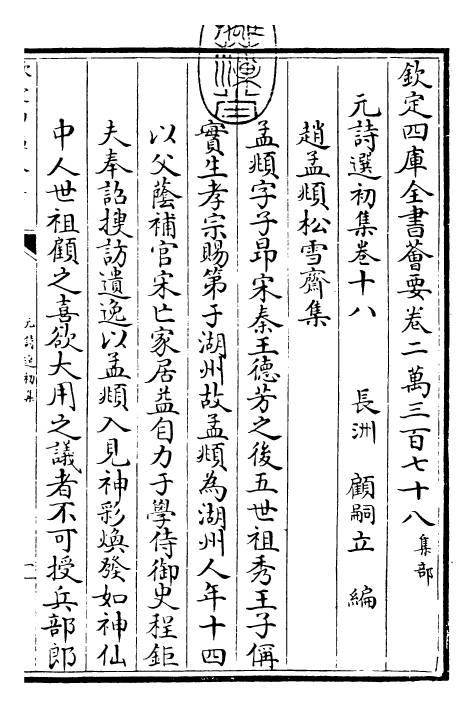 欽定四庫全書薈要卷二萬三百七十八集部
元詩選初集卷十八 長洲 顧嗣立 編
趙孟頫松雪齋集
孟頫字子昂宋秦王德芳之後五世祖秀王子偁
實生孝宗賜第于湖州故孟頫為湖州人年十四
以父蔭補官宋亡家居益自力于學侍御史程鉅
夫奉詔搜訪遺逸以孟頫入見神彩煥發如神仙
中人世祖顧之喜欲大用之議者不可授兵部郎
元詩選初集